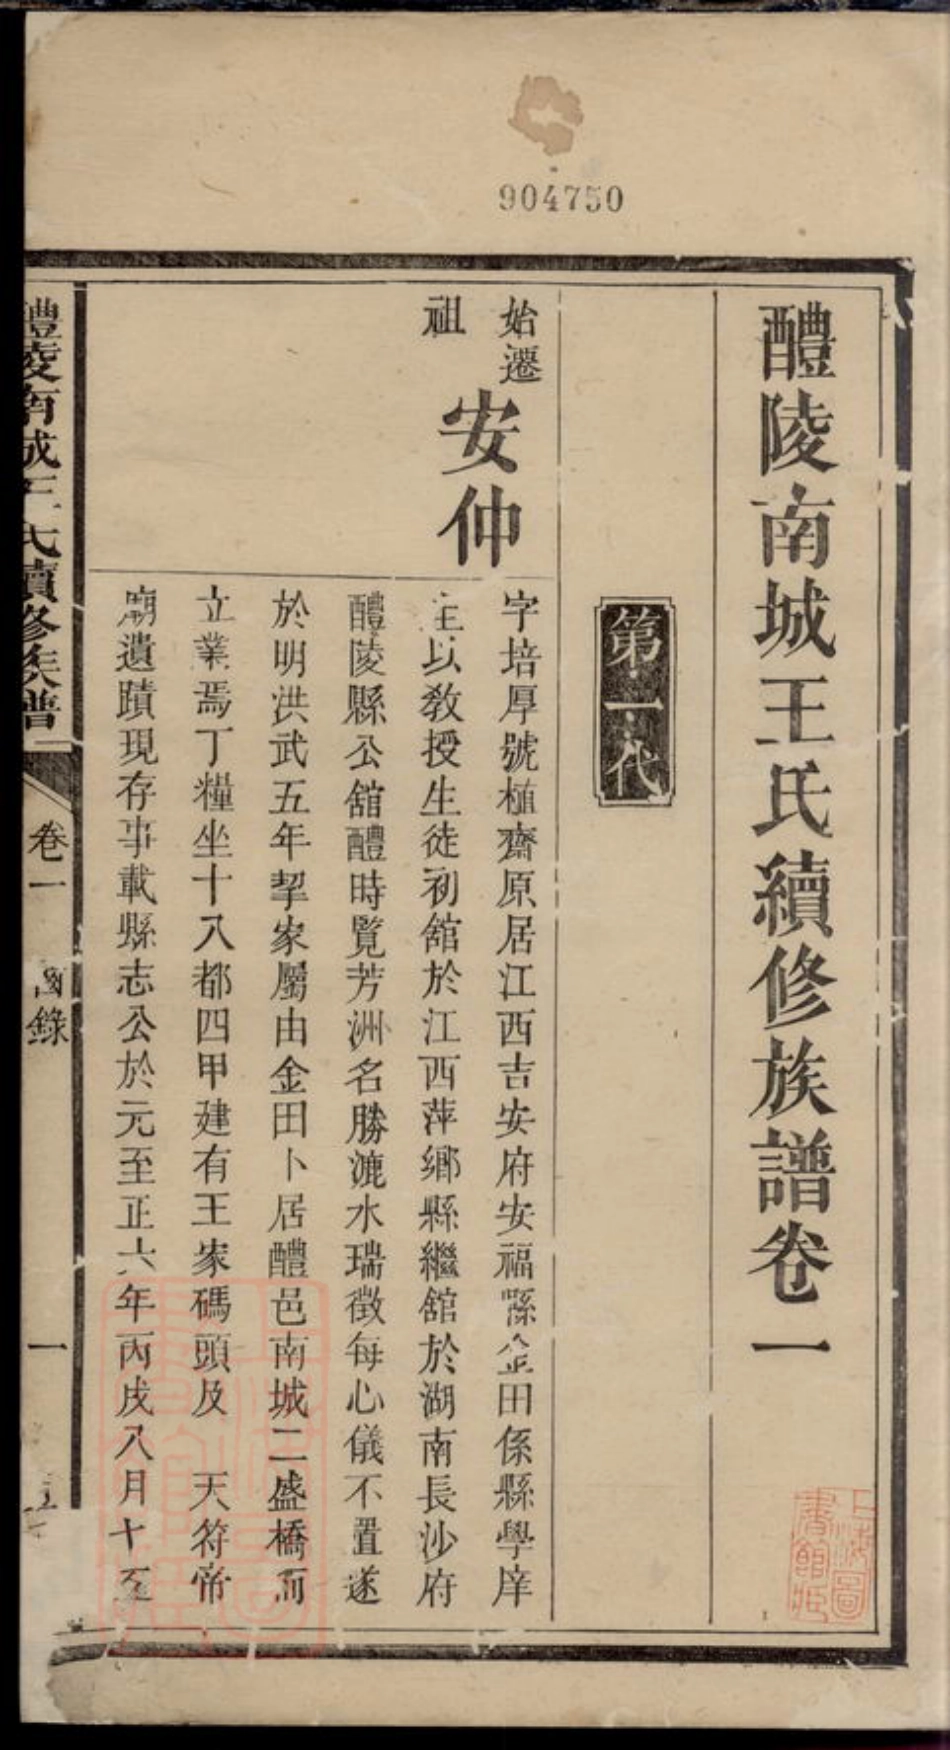 904750
醴陵南城王氏續修族譜卷一
第一代
始遷
祖
安仲
字培厚號植齋原居江西吉安府安福縣金田係縣學庠
生以教授生徒初舘於江西萍鄉縣繼舘於湖南長沙府
醴陵縣公舘醴時覽芳洲名勝漉水瑞徵每心儀不置遂
於明洪武五年挈家屬由金田卜居醴邑南城二盛橋而
立業焉丁糧坐十八都四甲建有王家碼頭及　天符帝
廟遺蹟現存事載縣志公於元至正六年丙戌八月十五
醴陵南城王氏續修族譜
卷一
錄
一